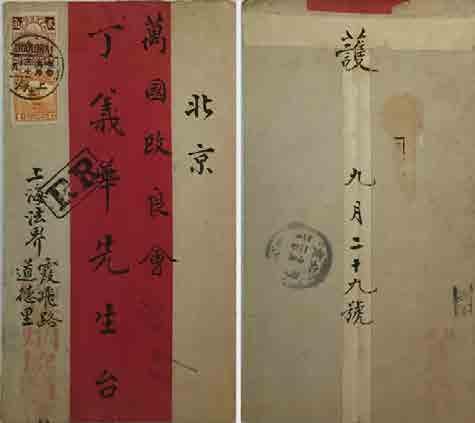 北京
萬國改良會
丁義華先生台
上海法界霞飛路
道德里
護
九月二十九號